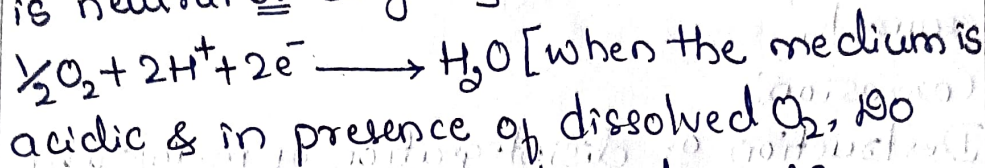 is
½O₂ + 2H⁺ + 2e⁻ ⟶ H₂O [when the medium is
acidic & in presence of dissolved O₂, DO